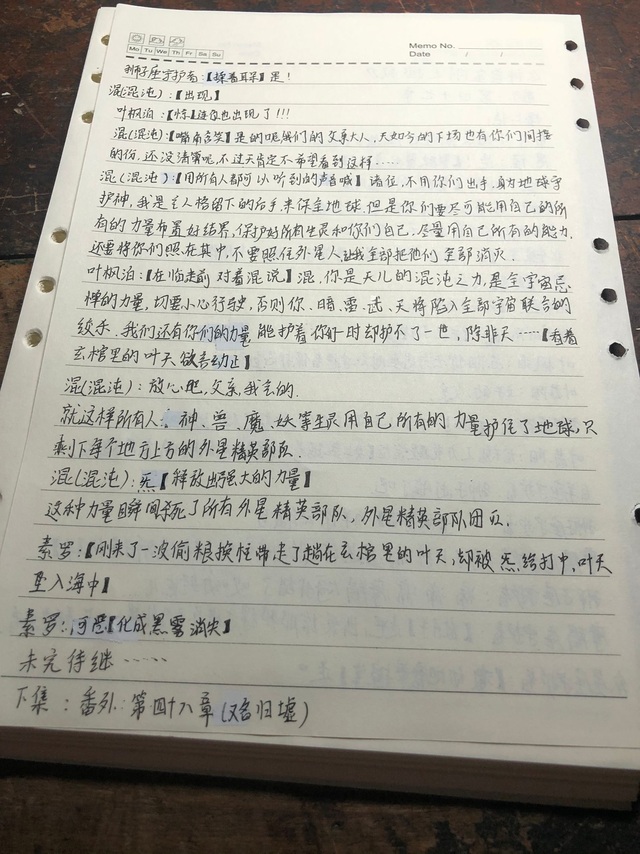 Mo Tu We Th Fr Sa Su
Memo No.
Date / /
狮子座守护者:【揉着耳朵】是!
混(混沌):【出现】
叶枫泊:【惊】连你也出现了!!!
混(混沌):【嘴角含笑】是的呢我们的父亲大人,天如今的下场也有你们间接
的份,还没清算呢,不过天肯定不希望看到这样……
混(混沌):【用所有人都可以听到的声音喊】诸位,不用你们出手,身为地球守
护神,我是主人格留下的后手来保全地球,但是你们要尽可能用自己的所
有的力量布置好结界,保护好所有生灵和你们自己,尽量用自己所有的能力,
还要将你们照在其中,不要照住外星人让我全部把他们全部消灭.
叶枫泊:【在临走前对着混说】混,你是天儿的混沌之力,是全宇宙忌
惮的力量,切要小心行驶,否则你、暗、雷、武、天将陷入全部宇宙联合的
绞杀.我们还有你们的力量能护着你们一时却护不了一世,除非天……【看着
玄棺里的叶天欲言幼止】
混(混沌):放心吧,父亲,我会的.
就这样所有人、神、兽、魔、妖等生灵用自己所有的力量护住了地球,只
剩下每个地方上方的外星精英部队.
混(混沌):炁【释放出强大的力量】
这种力量瞬间杀死了所有外星精英部队,外星精英部队团灭.
素罗:【刚来了一波偷粮换柱带走了趟在玄棺里的叶天,却被炁给打中,叶天
坠入海中】
素罗:可恶【化成黑雾消失】
未完待继……
下集:番外:第四十八章(双名归墟)